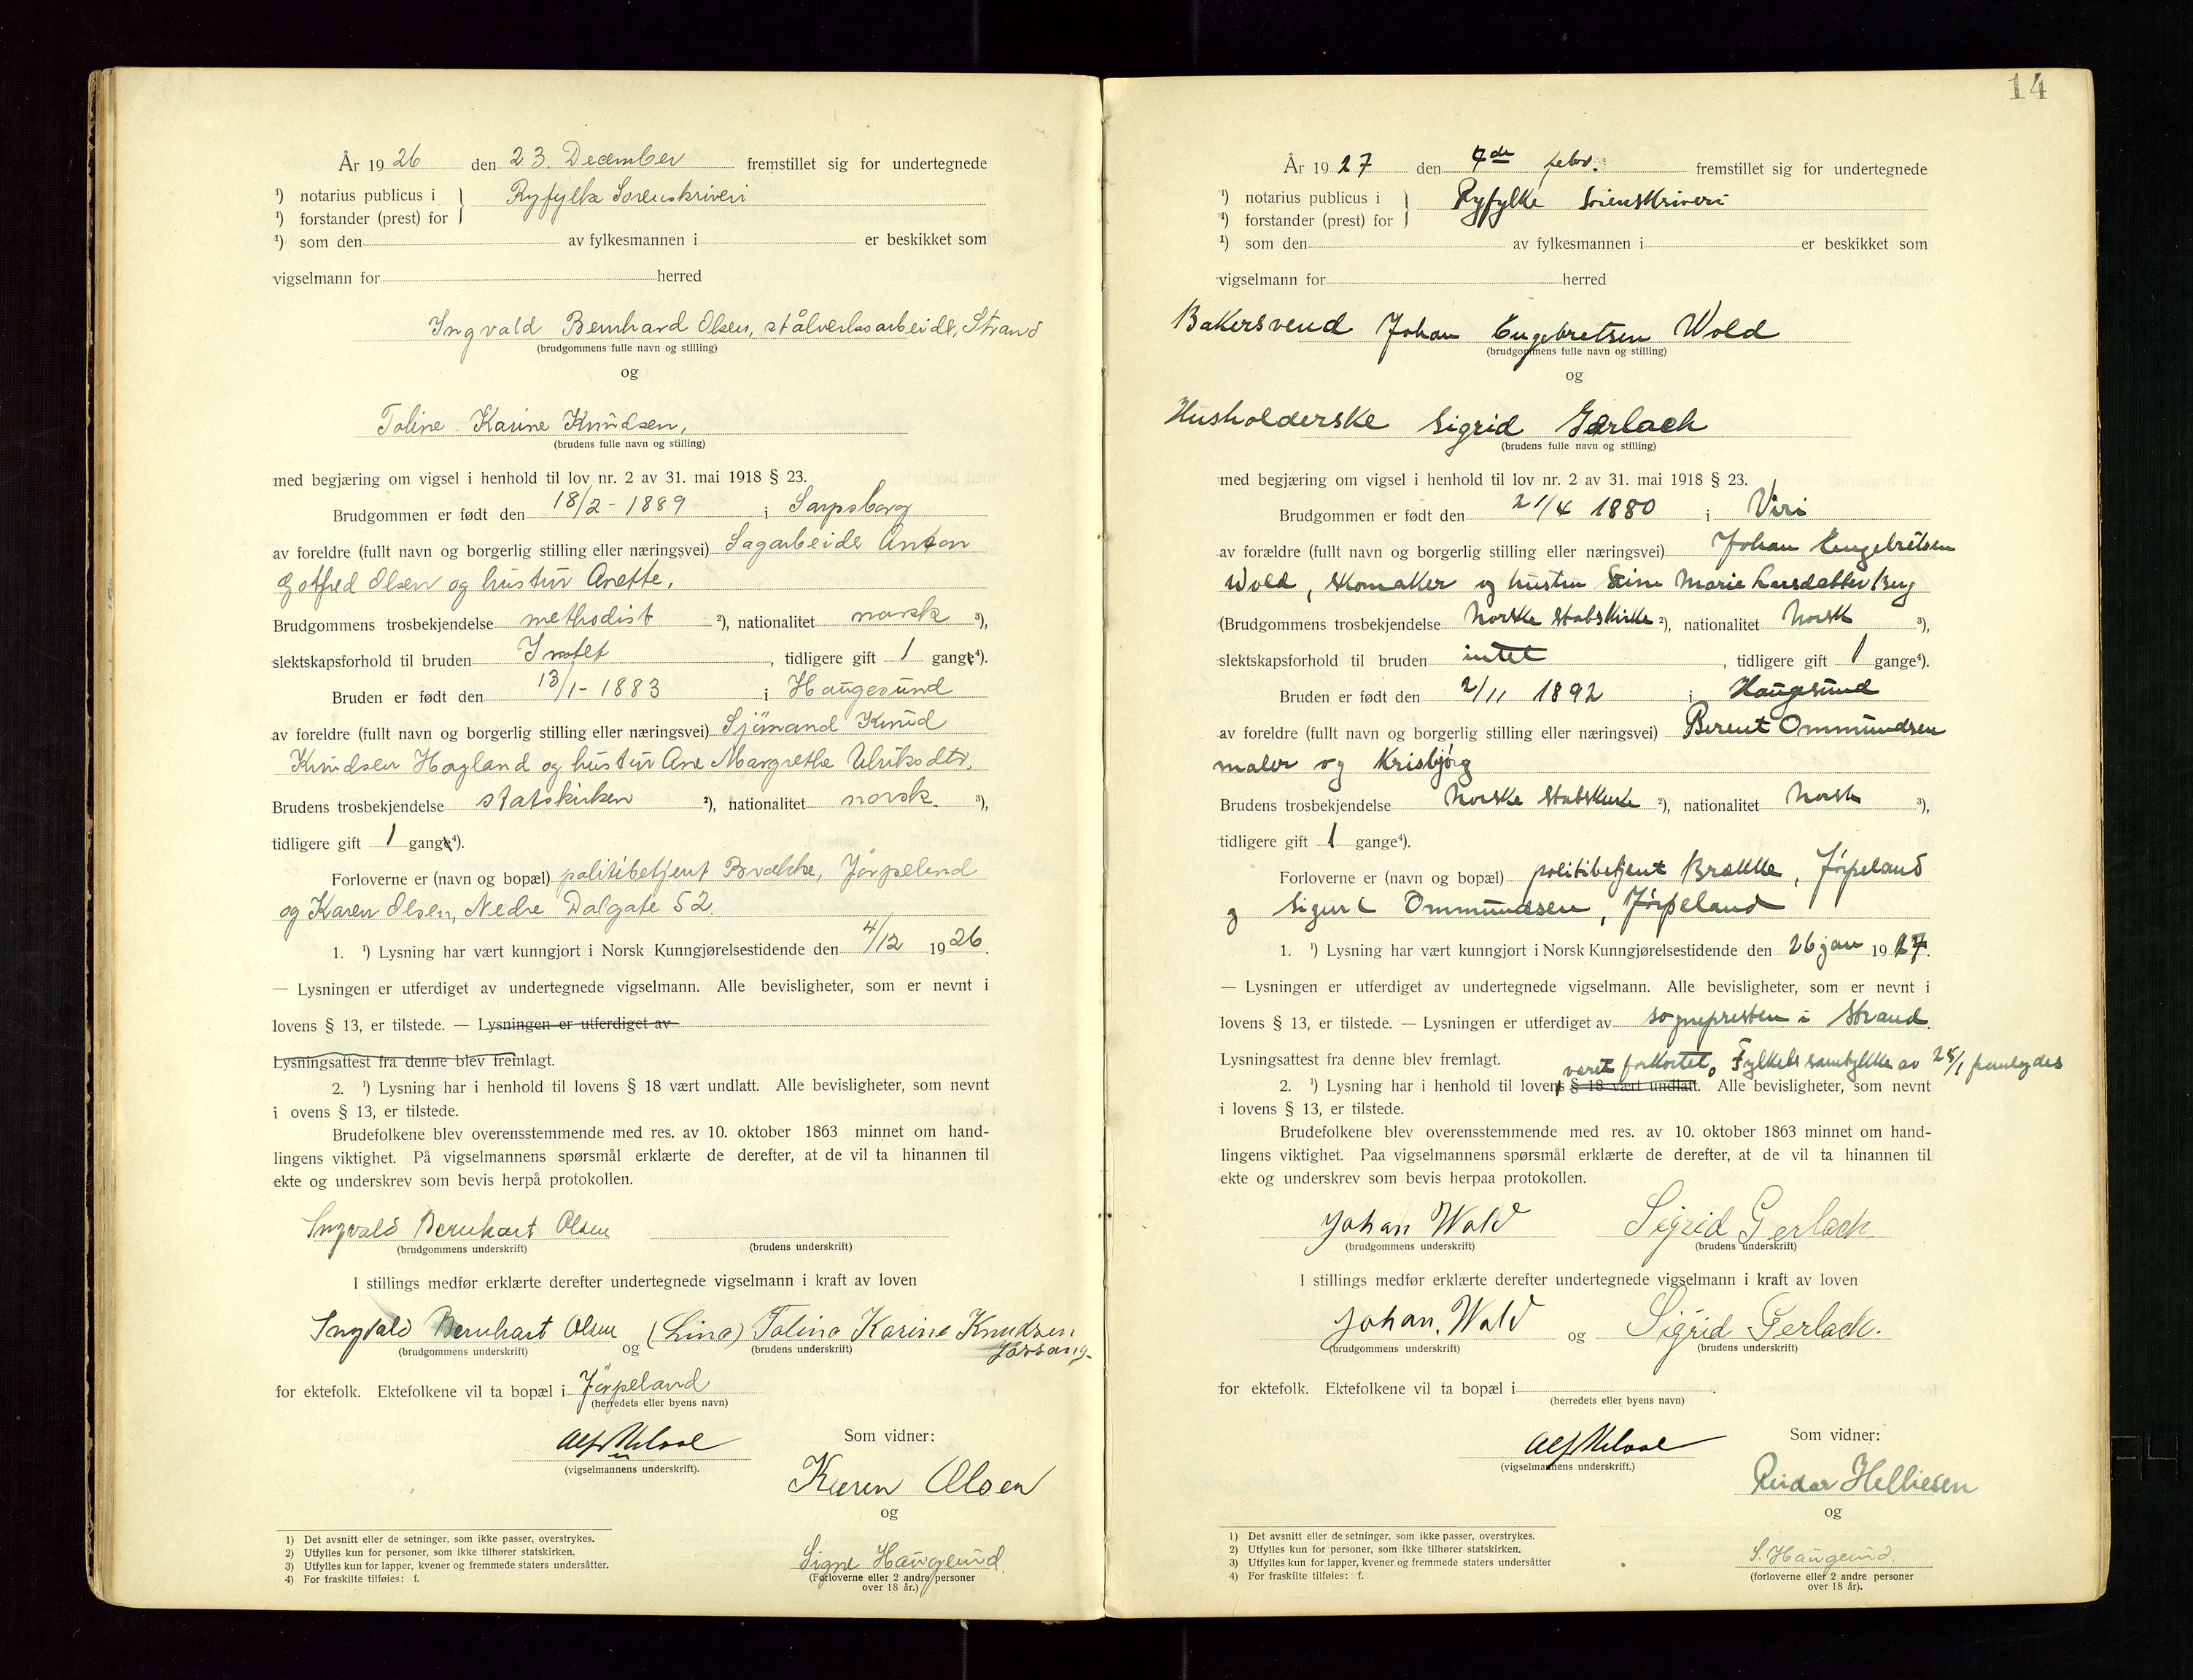 År 1926 den 23. December fremstillet sig for undertegnede
¹) notarius publicus i } Ryfylke Sorenskriveri
¹) forstander (prest) for
¹) som den av fylkesmannen i er beskikket som
vigselmann for herred
Ingvald Bernhard Olsen, stålverksarbeider, Strand
(brudgommens fulle navn og stilling)
og
Toline Karine Knudsen,
(brudens fulle navn og stilling)
med begjæring om vigsel i henhold til lov nr. 2 av 31. mai 1918 § 23.
Brudgommen er født den 18/2 - 1889 i Sarpsborg
av foreldre (fullt navn og borgerlig stilling eller næringsvei) Sagarbeider Anton
Gotfred Olsen og hustru Anette.
Brudgommens trosbekjendelse methodist ²), nationalitet norsk ³),
slektskapsforhold til bruden Intet, tidligere gift 1 gange⁴).
Bruden er født den 13/1 - 1883 i Haugesund
av foreldre (fullt navn og borgerlig stilling eller næringsvei) Sjömand Knud
Knudsen Hagland og hustru Ane Margrethe Ulriksdtr.
Brudens trosbekjendelse statskirken ²), nationalitet norsk. ³),
tidligere gift 1 gange⁴).
Forloverne er (navn og bopæl) politibetjent Brække, Jörpeland
og Karen Olsen, Nedre Dalgate 52.
1. ¹) Lysning har vært kunngjort i Norsk Kunngjørelsestidende den 4/12 1926.
— Lysningen er utferdiget av undertegnede vigselmann. Alle bevisligheter, som er nevnt i
lovens § 13, er tilstede. — Lysningen er utferdiget av
Lysningsattest fra denne blev fremlagt.
2. ¹) Lysning har i henhold til lovens § 18 vært undlatt. Alle bevisligheter, som nevnt
i ovens § 13, er tilstede.
Brudefolkene blev overensstemmende med res. av 10. oktober 1863 minnet om hand-
lingens viktighet. På vigselmannens spørsmål erklærte de derefter, at de vil ta hinannen til
ekte og underskrev som bevis herpå protokollen.
Ingvald Bernhart Olsen
(brudgommens underskrift) (brudens underskrift)
I stillings medfør erklærte derefter undertegnede vigselmann i kraft av loven
Ingvald Bernhart Olsen og (Lina) Tolina Karine Knudsen
Jössang-
(brudgommens underskrift) (brudens underskrift)
for ektefolk. Ektefolkene vil ta bopæl i Jörpeland
(herredets eller byens navn)
Som vidner:
(vigselmannens underskrift).
Karen Olsen
og
Signe Hauglund.
(Forloverne eller 2 andre personer
over 18 år.)
1) Det avsnitt eller de setninger, som ikke passer, overstrykes.
2) Utfylles kun for personer, som ikke tilhører statskirken.
3) Utfylles kun for lapper, kvener og fremmede staters undersåtter.
4) For fraskilte tilføies: f.
14
År 1927 den 7de febr. fremstillet sig for undertegnede
¹) notarius publicus i } Ryfylke Sorenskriveri
¹) forstander (prest) for
¹) som den av fylkesmannen i er beskikket som
vigselmann for herred
Bakersvend Johan Engebretsen Wold
(brudgommens fulle navn og stilling)
og
Husholderske Sigrid Gerlach
(brudens fulle navn og stilling)
med begjæring om vigsel i henhold til lov nr. 2 av 31. mai 1918 § 23.
Brudgommen er født den 21/4 1880 i Viri
av forældre (fullt navn og borgerlig stilling eller næringsvei) Johan Engebretsen
Wold, skomaker og hustru Marie Larsdatter Berg
(Brudgommens trosbekjendelse Norske statskirke ²), nationalitet Norsk ³),
slektskapsforhold til bruden intet, tidligere gift 1 gange⁴).
Bruden er født den 2/11 1892 i Haugesund
av foreldre (fullt navn og borgerlig stilling eller næringsvei) Berent Ommundsen
maler og Krisbjörg
Brudens trosbekjendelse Norske statskirke ²), nationalitet Norsk ³),
tidligere gift 1 gange⁴).
Forloverne er (navn og bopæl) politibetjent Brække, Jörpeland
og Sigurd Ommundsen, Jörpeland
1. ¹) Lysning har vært kunngjort i Norsk Kunngjørelsestidende den 26 jan 1927.
— Lysningen er utferdiget av undertegnede vigselmann. Alle bevisligheter, som er nevnt i
lovens § 13, er tilstede. — Lysningen er utferdiget av sognepresten i Strand
Lysningsattest fra denne blev fremlagt.
været forkortet. Fylkets samtykke av 25/1 fremlagdes
2. ¹) Lysning har i henhold til lovens § 18 vært undlatt. Alle bevisligheter, som nevnt
i lovens § 13, er tilstede.
Brudefolkene blev overensstemmende med res. av 10. oktober 1863 minnet om hand-
lingens viktighet. Paa vigselmannens spørsmål erklærte de derefter, at de vil ta hinannen til
ekte og underskrev som bevis herpaa protokollen.
Johan Wold Sigrid Gerlach.
(brudgommens underskrift) (brudens underskrift)
I stillings medfør erklærte derefter undertegnede vigselmann i kraft av loven
Johan Wold og Sigrid Gerlach.
(brudgommens underskrift) (brudens underskrift)
for ektefolk. Ektefolkene vil ta bopæl i .
(herredets eller byens navn)
Som vidner:
(vigselmannens underskrift.)
Reidar Helliesen
og
S. Hauglund.
(forloverne eller 2 andre personer
over 18 år).
1) Det avsnitt eller de setninger, som ikke passer, overstrykes.
2) Utfylles kun for personer, som ikke tilhører statskirken.
3) Utfylles kun for lapper, kvener og fremmede staters undersåtter
4) For fraskilte tilføies: f.